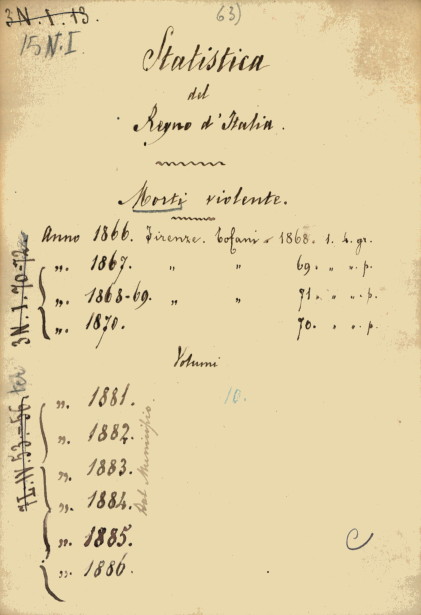 3 N. 1. 13.
63)
15 N. I
Statistica
del
Regno d'Italia.
Morti violente.
Anno 1866. Firenze. Tofani - 1868. 1. 4. gr.
„ 1867. „ „ 69. „ „ p.
„ 1868-69. „ „ 71. „ „ p.
„ 1870. 70. „ „ p.
3 N. 1. 70-72
Volumi
„ 1881. 10.
„ 1882.
„ 1883.
„ 1884.
„ 1885.
„ 1886.
Dal Municipio.
C